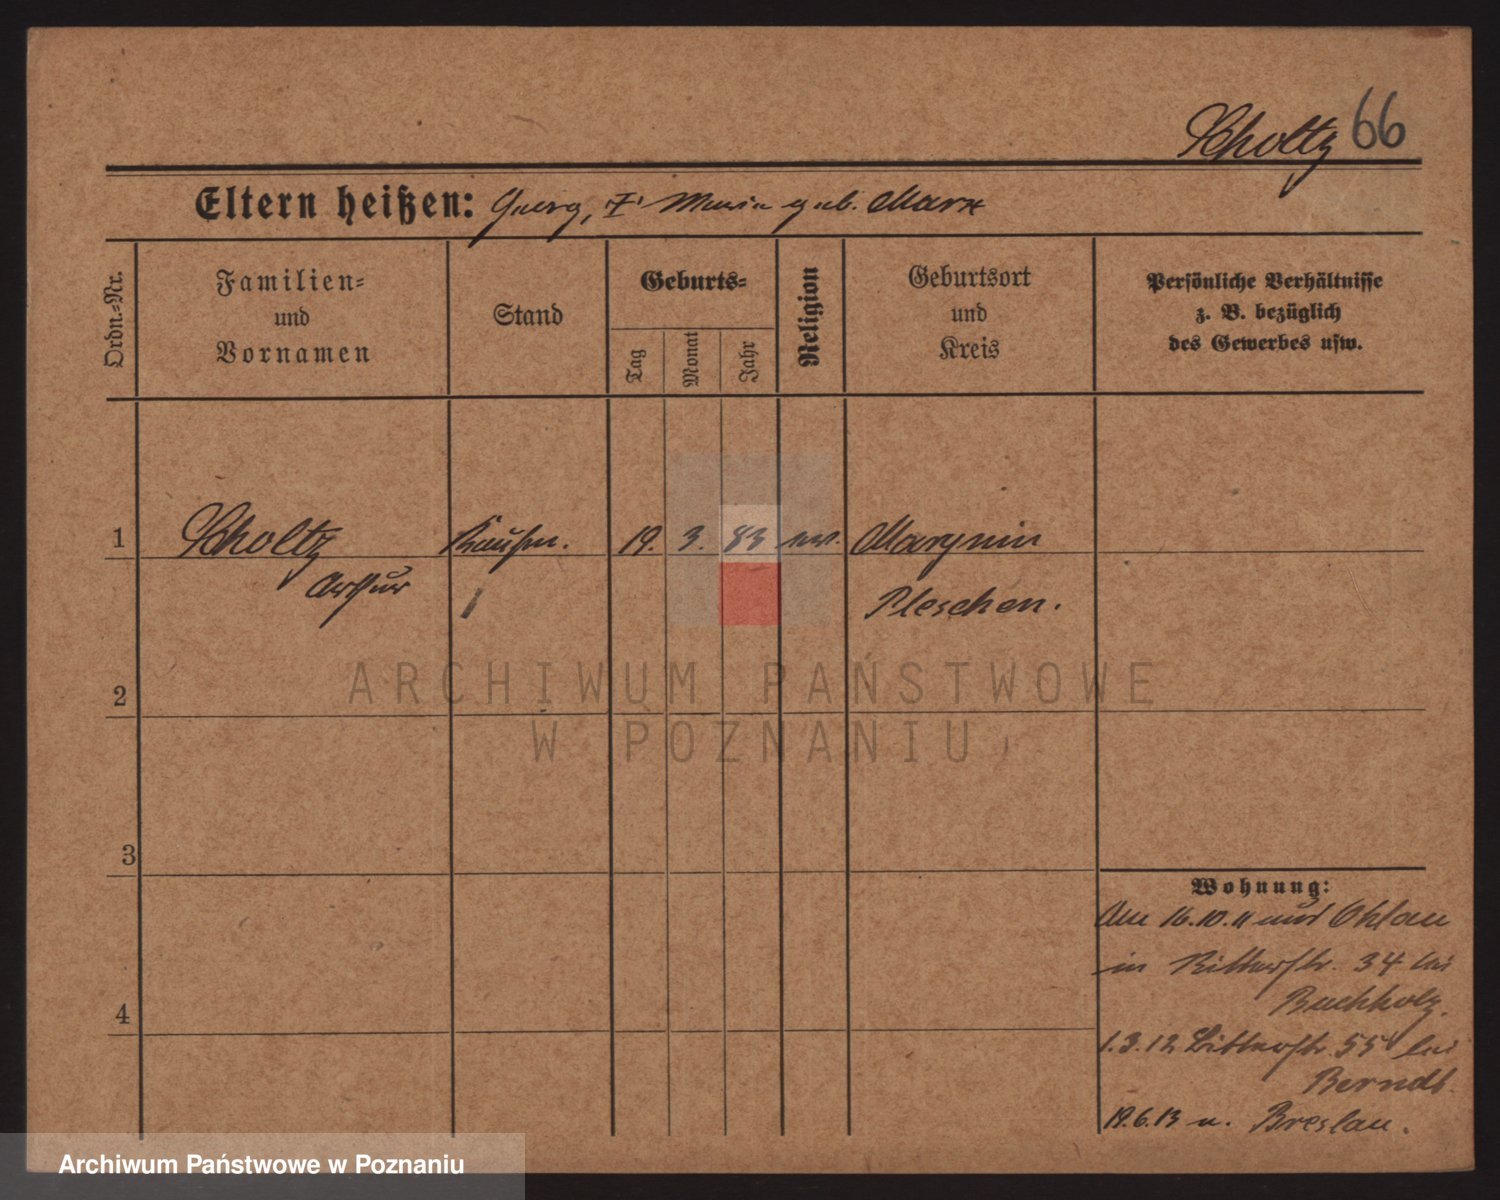 Scholtz 66
Eltern heißen: Georg, Maria geb. Marx
Ordn.-Nr.
Familien-
und
Vornamen
Stand
Geburts-
Tag
Monat
Jahr
Religion
Geburtsort
und
Kreis
Persönliche Verhältnisse
z. B. bezüglich
des Gewerbes usw.
1 Scholtz Kaufm. 19. 3. 83 ev. Marynin
Arthur Pleschen.
2
3
4
Wohnung:
Am 16.10.11 aus Ohlau
in Ritterstr. 34 bei
Buchholz.
1.3.12 Ritterstr. 55 bei
Berndt.
19.6.13 n. Breslau.
ARCHIWUM PAŃSTWOWE
W POZNANIU
Archiwum Państwowe w Poznaniu